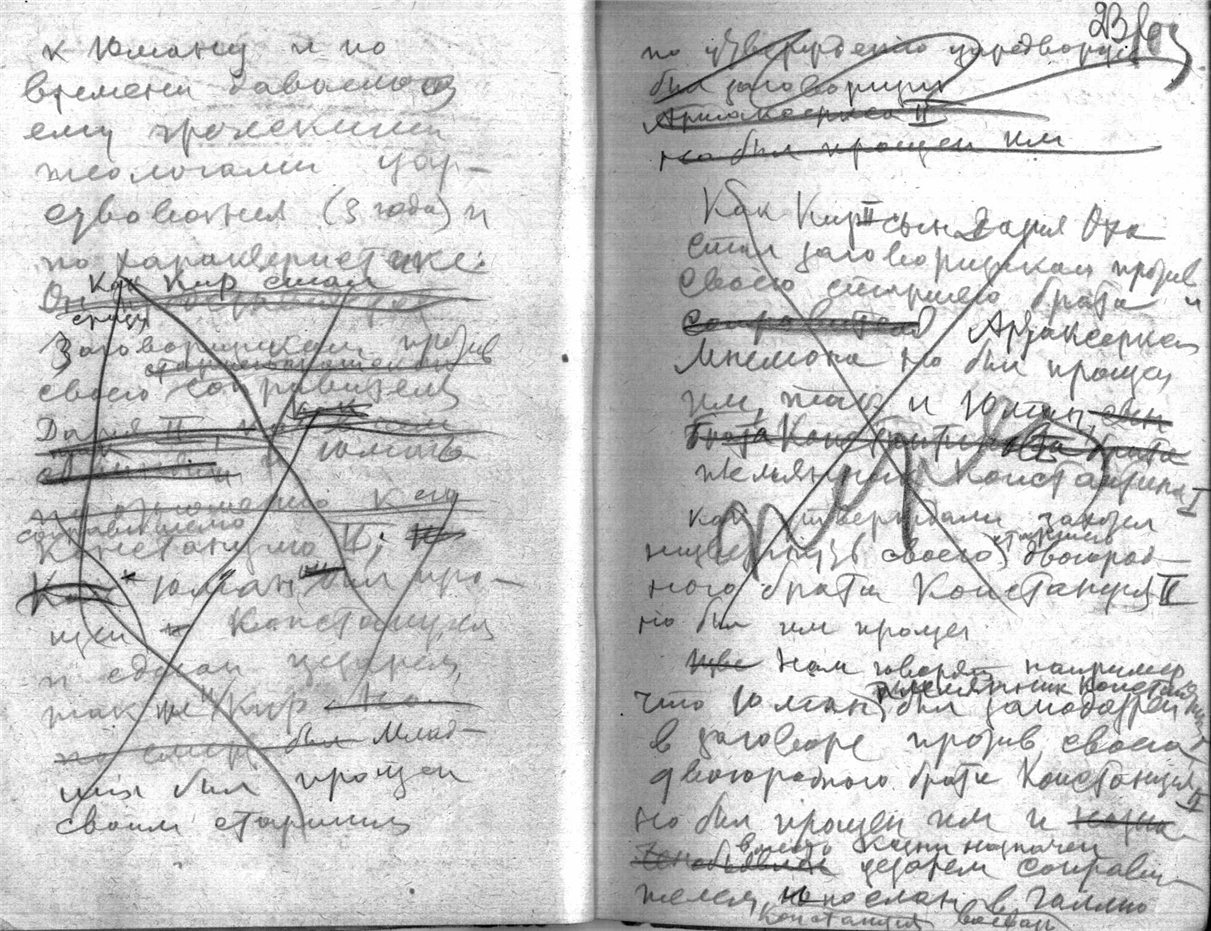 к Юлиану и по
времени даваемого
ему греческими
теологами цар-
ствования (3 года) и
по характеристике:
Как Кир стал
Он
Заговорщиком против
своего соправителя
Дария II, но
Юлиан
по отношению к
соправителю
Констанцию II,
Как Юлиан был про-
щен Констанцием
и сделан цезарем,
так же и Кир
был Млад-
ший был прощен
своим старшим
23
по утверждению
был заговорщик
Артаксеркса II
но был прощен им
Как Кир II сын Дария Оха
стал заговорщиком против
своего старшего брата
соправителя Артаксеркса
Мнемона но был прощен
им, так и Юлиан,
брата
племянник Константина I
как утверждали захотел
низвергнуть своего двоюрод-
ного брата Констанция II
но был им прощен
Нам говорят например
племянник Константина
что Юлиан был заподозрен
в заговоре против своего
двоюродного брата Констанция II
но был прощен им и
вместо казни назначен
цезарем соправи-
телем, и послан в Галлию
Констанция